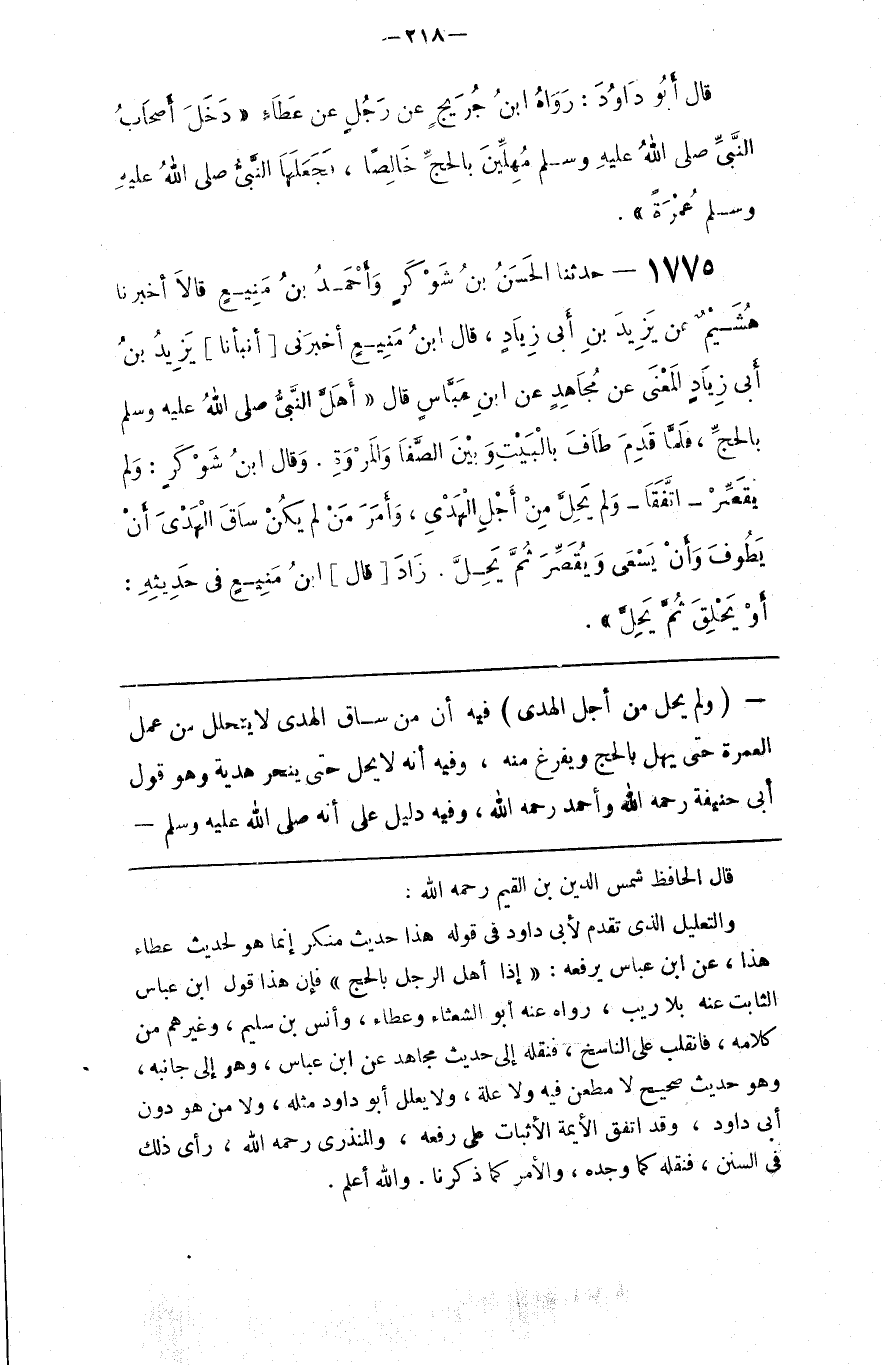 —٢١٨—
قال أَبُو دَاوُدَ : رَوَاهُ ابنُ جُرَيجٍ عن رَجُلٍ عن عَطَاءِ « دَخَلَ أَصحَابُ
النَّبيِّ صلى اللهُ عليهِ وسلم مُهِلِّينَ بالحجِّ خَالِصًا ، فَجَعَلَهَا النَّبيُّ صلى اللهُ عليهِ
وسلم عُمْرَةً » .
١٧٧٥ — حدثنا الحَسَنُ بنُ شَوْكَرٍ وَأَحْمَدُ بنُ مَنِيعٍ قالاَ أخبرنا
هُشَيْمٌ عن يَزِيدَ بنِ أبى زِيَادٍ ، قال ابنُ مَنِيعٍ أخبرَنى [ أنبأنا ] يَزِيدُ بنُ
أَبى زِيَادٍ المَعْنَى عن مُجَاهِدٍ عن ابنِ عَبَّاسٍ قال « أَهَلَّ النَّبيُّ صلى اللهُ عليه وسلم
بالحجِّ ، فَلمَّا قَدِمَ طَافَ بالْبَيْتِ وَبيْنَ الصَّفَا وَالمَرْوَةِ . وَقال ابنُ شَوْكَرٍ : وَلم
يُقَصِّرْ – اتَّفَقَا – وَلم يَحِلَّ مِنْ أَجْلِ الْهَدْىِ ، وَأَمَرَ مَنْ لم يَكُنْ سَاقَ الْهَدْىَ أَنْ
يَطُوفَ وَأَنْ يَسْعَى وَيُقَصِّرَ ثُمَّ يَحِلَّ . زَادَ [ قال ] ابنُ مَنِيعٍ فى حَدِيثِهِ :
أَوْ يَحْلِقَ ثُمَّ يَحِلَّ » .
— ( ولم يحل من أجل الهدى ) فيه أن من ساق الهدى لايتحلل من عمل
العمرة حتى يهل بالحج ويفرغ منه ، وفيه أنه لايحل حتى ينحر هدية وهو قول
أبى حنيفة رحمه الله وأحمد رحمه الله ، وفيه دليل على أنه صلى الله عليه وسلم —
قال الحافظ شمس الدين بن القيم رحمه الله :
والتعليل الذى تقدم لأبى داود فى قوله هذا حديث منكر إنما هو لحديث عطاء
هذا ، عن ابن عباس يرفعه : « إذا أهل الرجل بالحج » فإن هذا قول ابن عباس
الثابت عنه بلا ريب ، رواه عنه أبو الشعثاء وعطاء ، وأنس بن سليم ، وغيرهم من
كلامه ، فانقلب على الناسخ ، فنقله إلى حديث مجاهد عن ابن عباس ، وهو إلى جانبه ،
وهو حديث صحيح لا مطعن فيه ولا علة ، ولايعلل أبو داود مثله ، ولا من هو دون
أبى داود ، وقد اتفق الأيمة الأثبات على رفعه ، والمنذرى رحمه الله ، رأى ذلك
فى السنن ، فنقله كما وجده ، والأمر كما ذكرنا . والله أعلم .